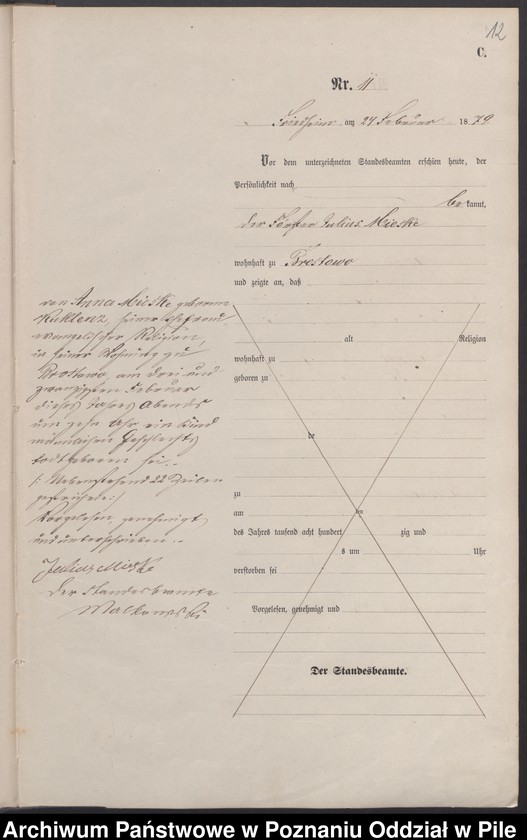 12
C.
Nr. 11
Friedheim am 24 Februar 1879
Vor dem unterzeichneten Standesbeamten erschien heute, der
Persönlichkeit nach
bekannt,
der Förster Julius Mieske
wohnhaft zu Brostowo
und zeigte an, daß
von Anna Mieske geborenen
Kuklenz, seiner Ehefrau,
evangelischer Religion,
in seiner Wohnung zu
Brostowo, am drei und
zwanzigsten Februar
dieses Jahres Abends
um zehn Uhr ein Kind
männlichen Geschlechts
todtgeboren sei.
/: Nebenstehend 22 Zeilen
gestrichen :/
Vorgelesen, genehmigt
und unterschrieben
Julius Mieske
Der Standesbeamte
alt Religion
wohnhaft zu
geboren zu
de
zu
am ten
des Jahres tausend acht hundert zig und
s um Uhr
verstorben sei
Vorgelesen, genehmigt und
Der Standesbeamte.
Archiwum Państwowe w Poznaniu Oddział w Pile